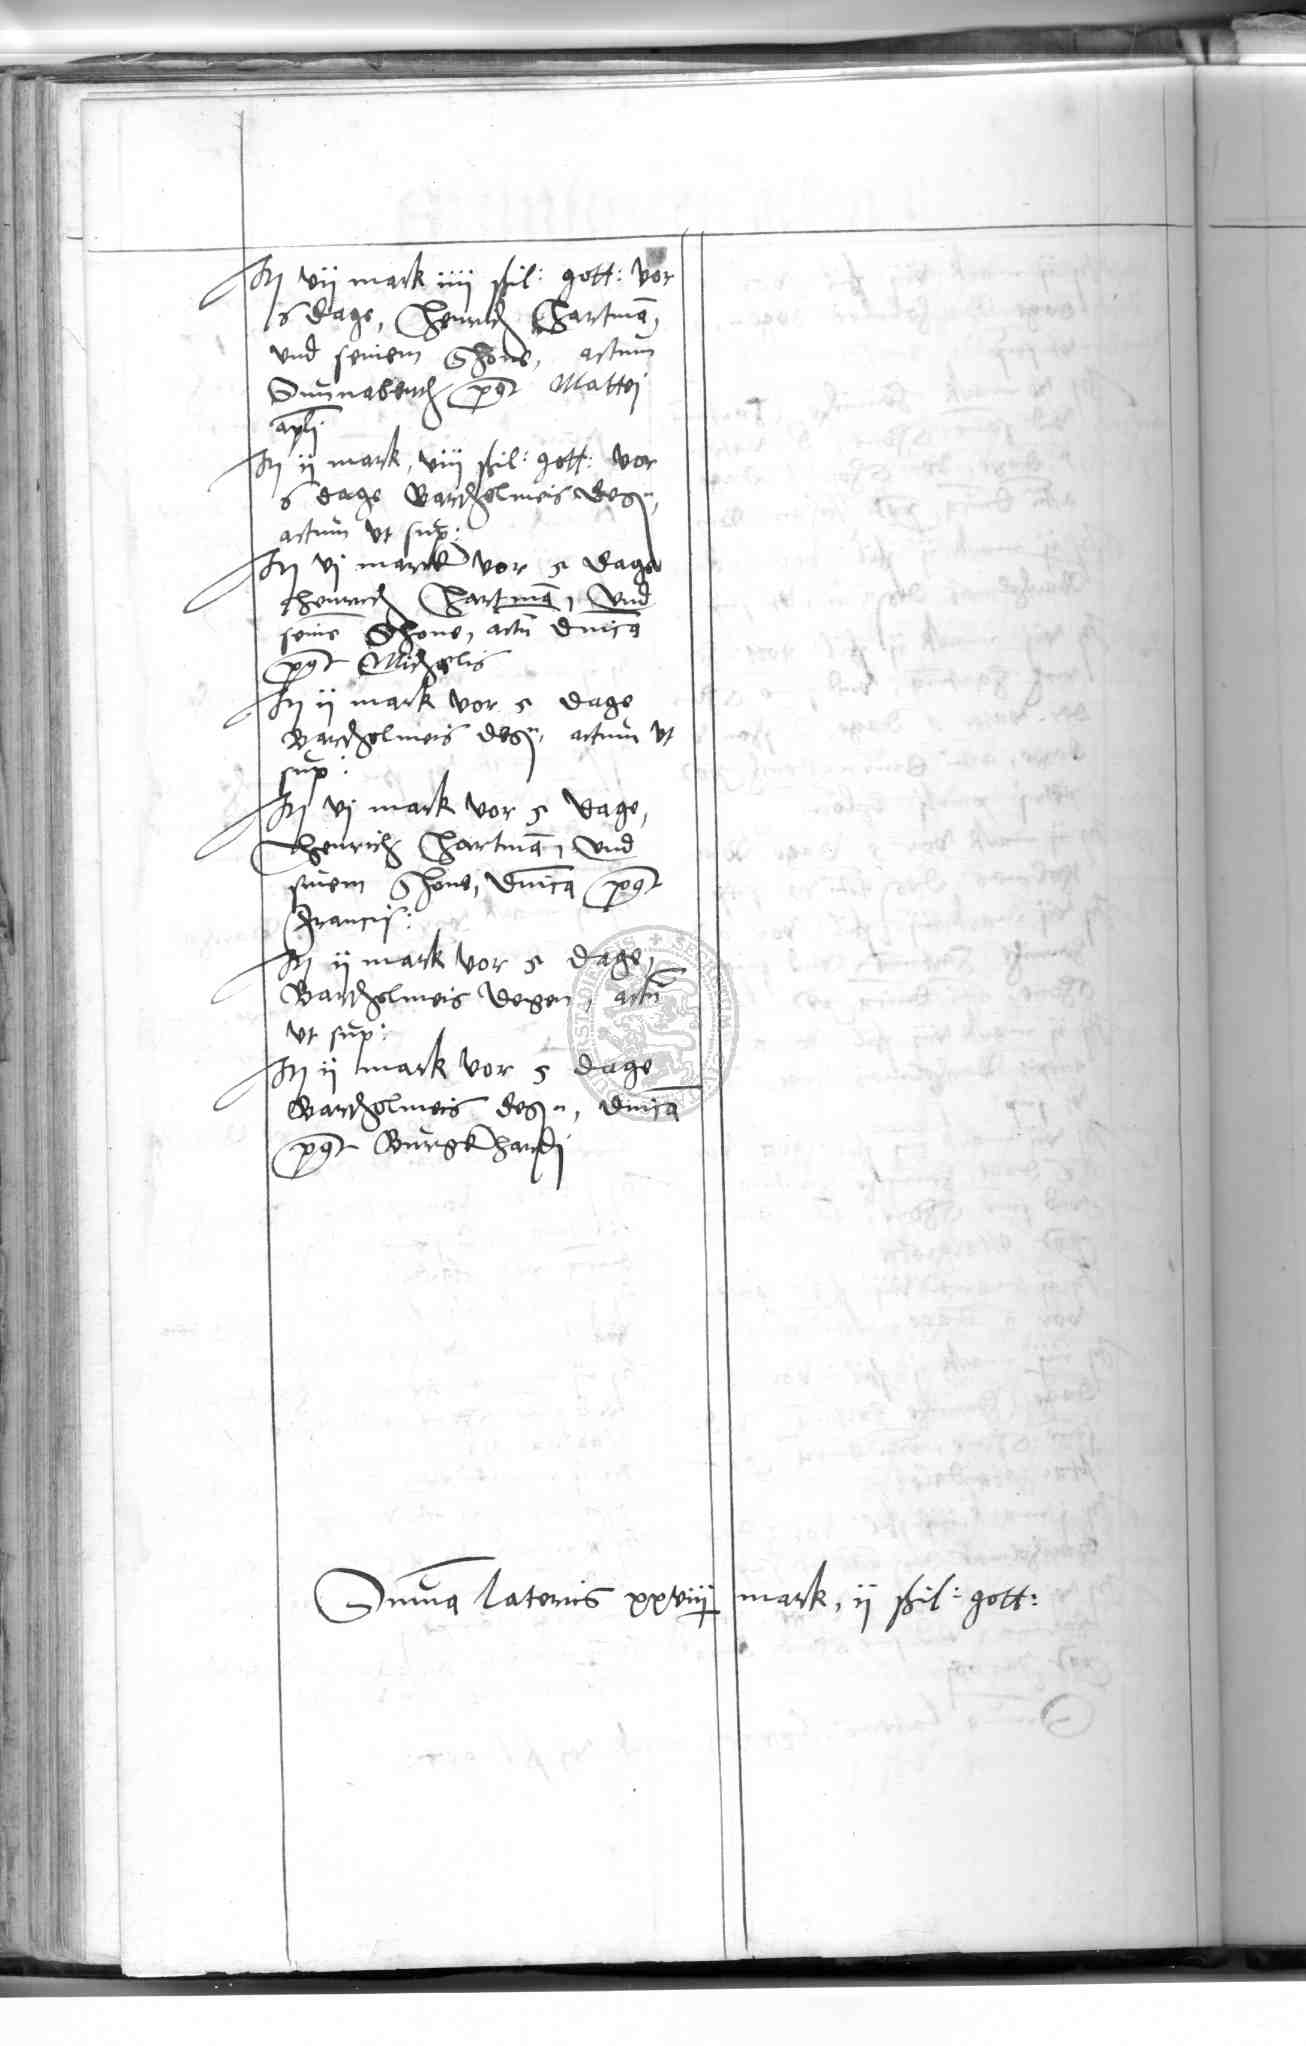 It vij mark iiij schil: gott: vor
6 dage, Henrich Hartmā,
vnd seinem Shone, actum
Sunnabends pꝰt Mattej
apli
It ij mark, viij schil: gott: vor
6 dage Bartholmeis degn,
actum vt sup:
It vj marck vor 5 dage
Henrich Hartmā, vnd
seinē Shone, actū dnica
pꝰt Michelis
It ij mark vor 5 dage
Bartholmeis degn, actum vt
sup:
It vj mark vor 5 dage,
Henrich Hartmā, vnd
sinem Shone, dnica pꝰt
Francis:
It ij mark vor 5 dage,
Bartholmeis degen, actū
vt sup:
It ij mark vor 5 dage
Bartholmeis degn, dnica
pꝰt Burgkhardj
Suma lateris xxviij mark, ij schil: gott: